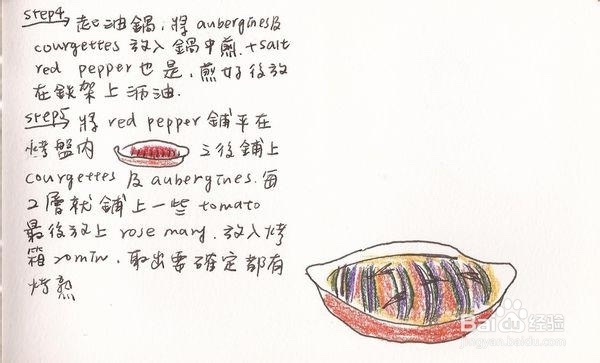 step4 起油鍋，將 aubergines及
courgettes 放入鍋中煎.+salt
red pepper也是，煎好後放
在鉄架上沥油.
step5 將 red pepper 鋪平在
烤盤內 之後鋪上
courgettes 及 aubergines. 每
2層就鋪上一些 tomato
最後放上 rose mary. 放入烤
箱 20min. 取出要確定都有
烤熟
Baidu 经验
jingyan.baidu.com